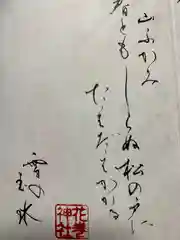 山ふかみ
春ともしらぬ松の戸に
たえだえかかる
雪の
玉水
神社